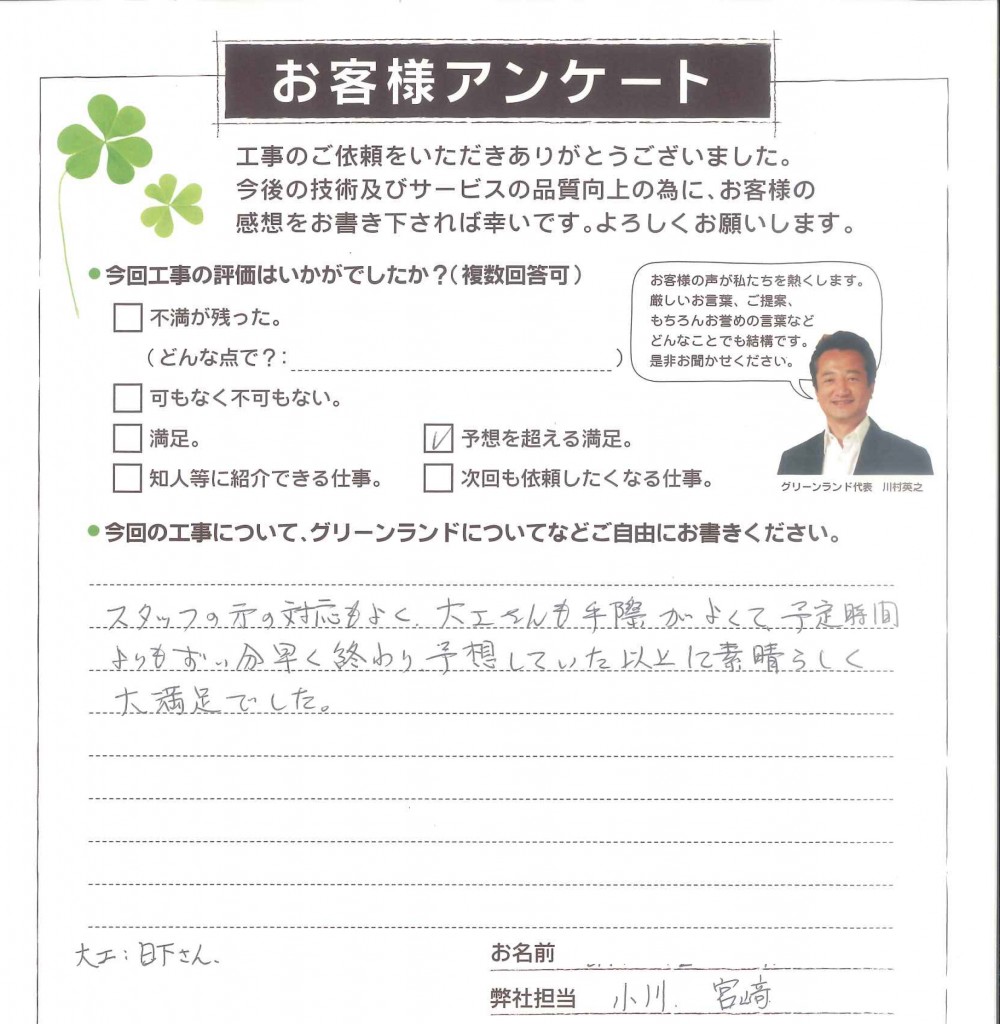 お客様アンケート
工事のご依頼をいただきありがとうございました。
今後の技術及びサービスの品質向上の為に、お客様の
感想をお書き下されば幸いです。よろしくお願いします。
●今回工事の評価はいかがでしたか?(複数回答可)
お客様の声が私たちを熱くします。
厳しいお言葉、ご提案、
もちろんお誉めの言葉など
どんなことでも結構です。
是非お聞かせください。
グリーンランド代表 川村英之
不満が残った。
(どんな点で?: )
可もなく不可もない。
満足。
予想を超える満足。
知人等に紹介できる仕事。
次回も依頼したくなる仕事。
●今回の工事について、グリーンランドについてなどご自由にお書きください。
スタッフの方の対応もよく、大工さんも手際がよくて、予定時間
よりもずい分早く終わり予想していた以上に素晴らしく
大満足でした。
大工:日下さん、
お名前
弊社担当 小川、宮﨑